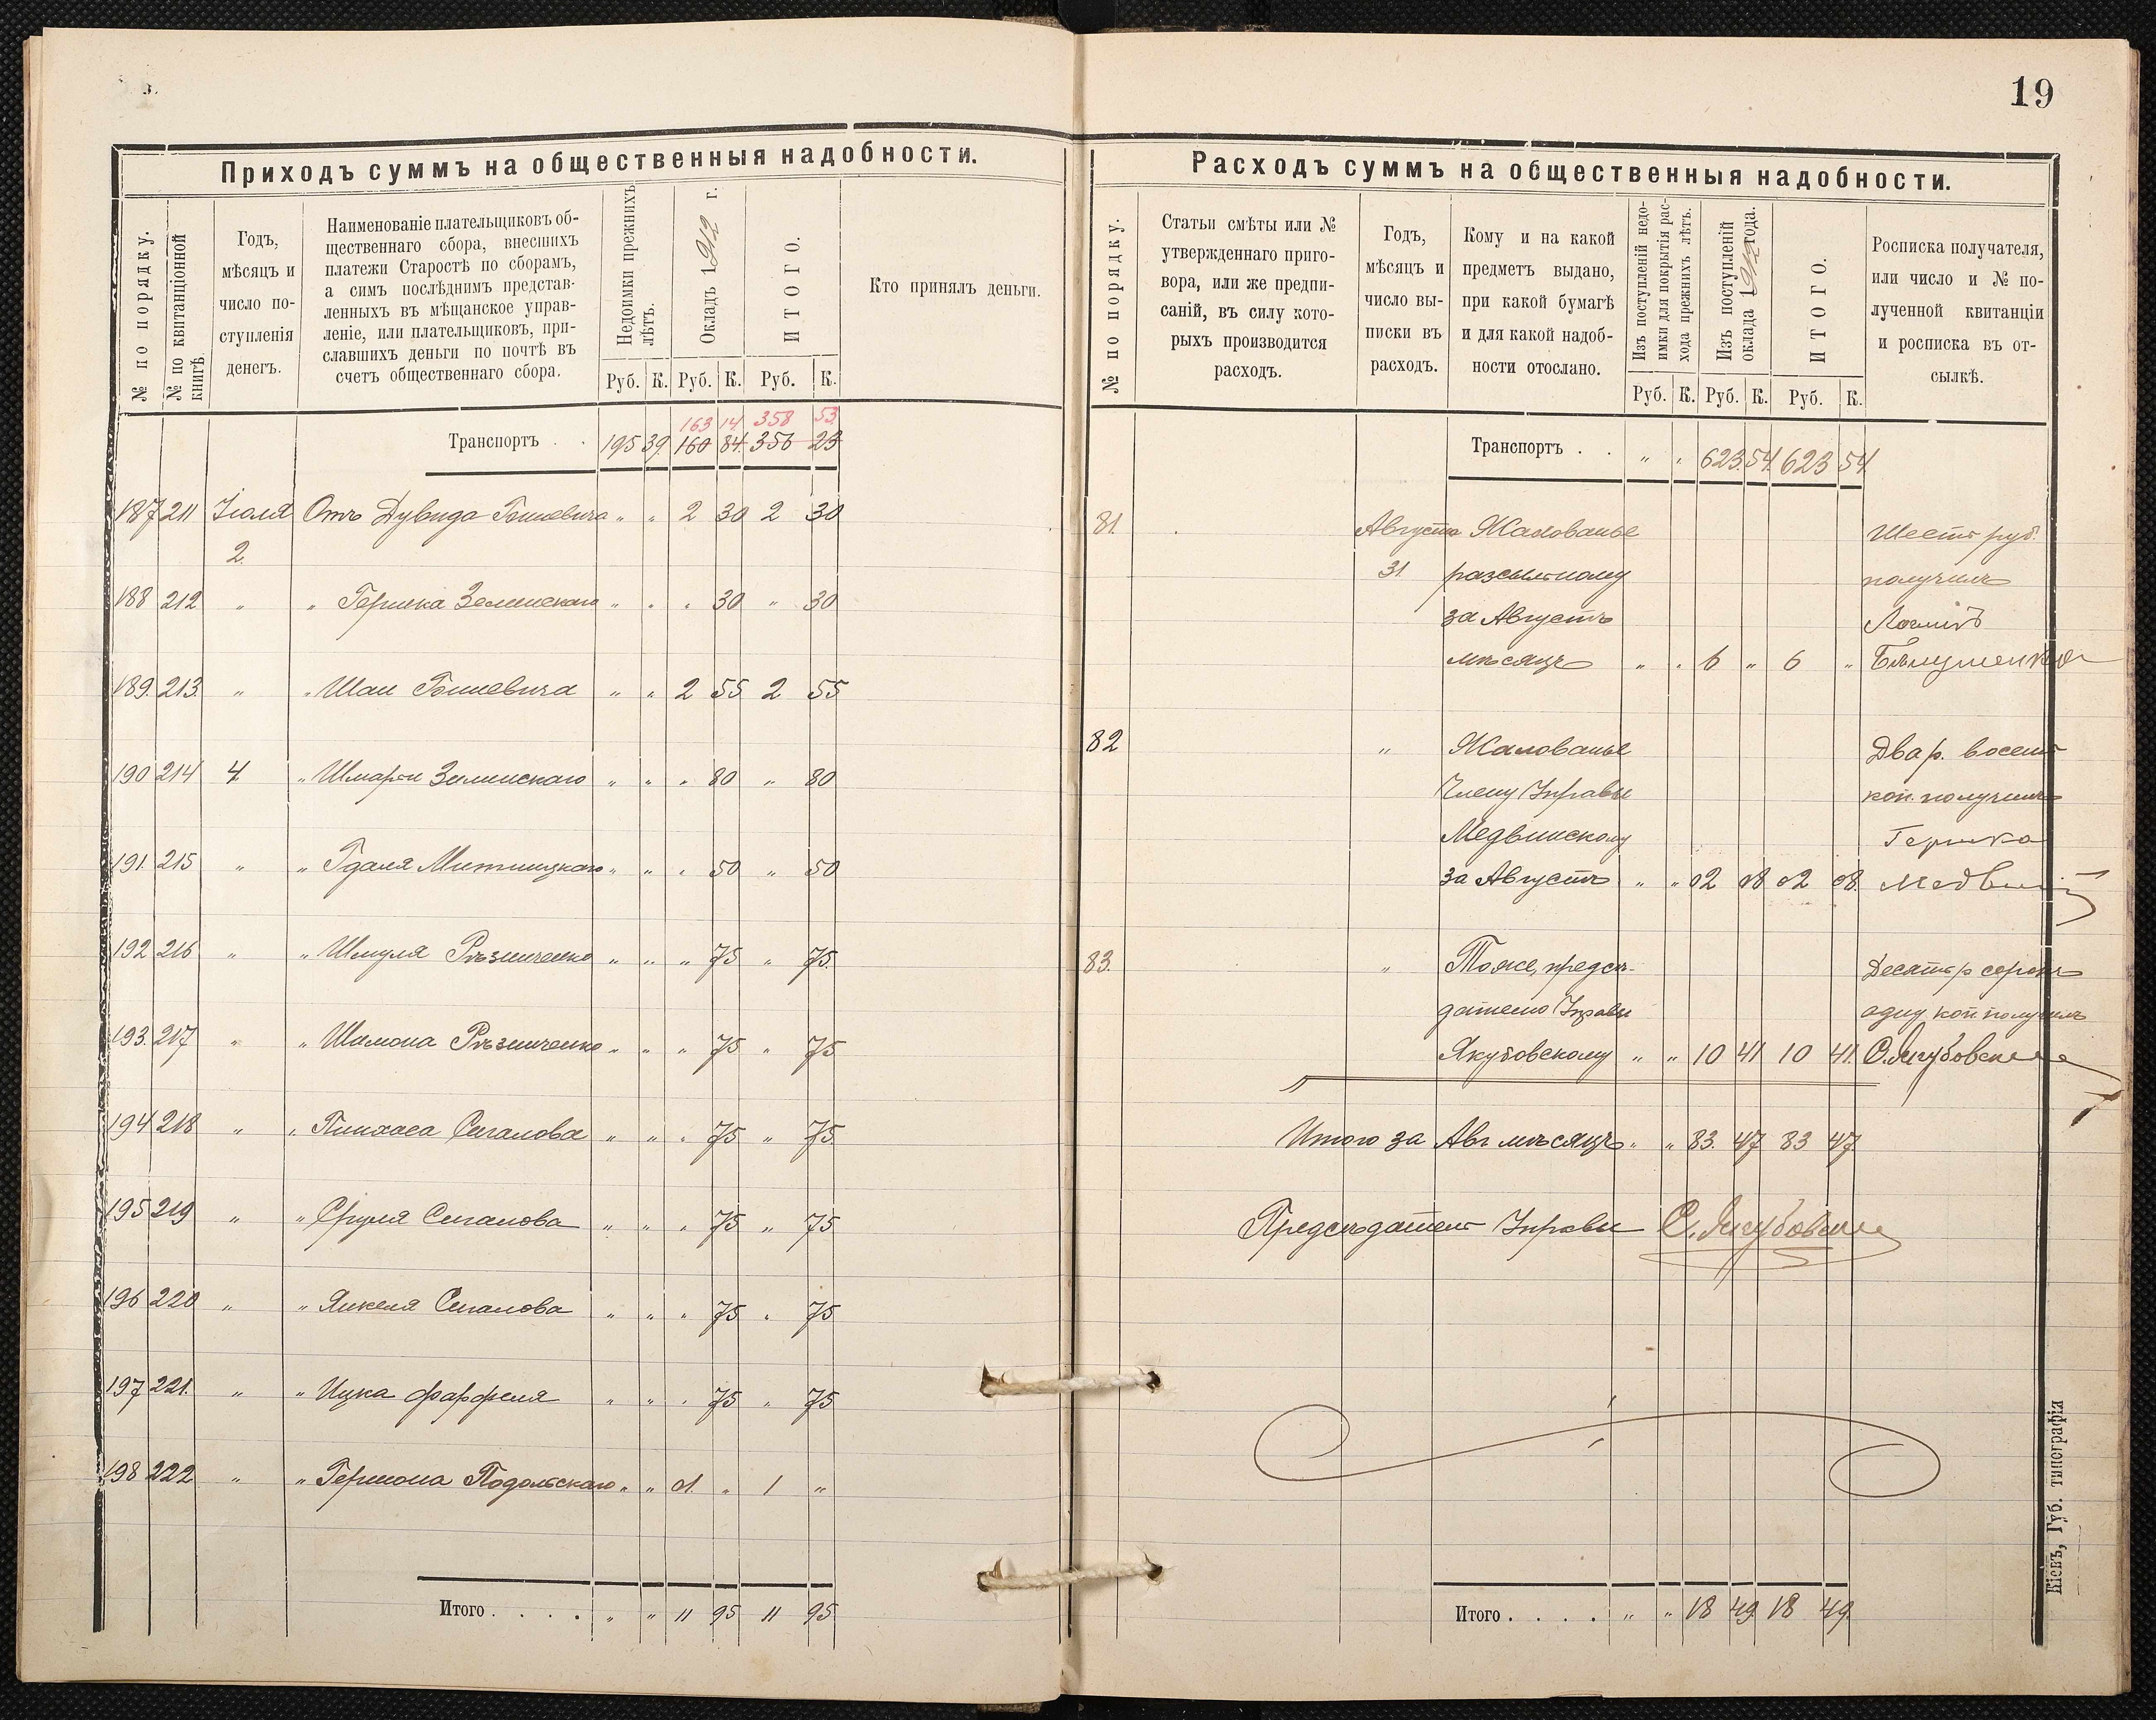 19
Приходъ суммъ на общественныя надобности.
№ по порядку.
№ по квитанціонной
книгѣ.
Годъ,
мѣсяцъ и
число по-
ступленія
денегъ.
Наименованіе плательщиковъ об-
щественнаго сбора, внесшихъ
платежи Старостѣ по сборамъ,
а симъ послѣднимъ представ-
ленныхъ въ мѣщанское управ-
леніе, или плательщиковъ, при-
славшихъ деньги по почтѣ въ
счетъ общественнаго сбора.
Недоимки прежнихъ
лѣтъ.
Окладъ 1912 г.
ИТОГО.
Кто принялъ деньги.
Руб. К. Руб. К. Руб. К.
163 14 358 53
Транспортъ . . 195 39 160 84 356 23
187 211 Іюля Отъ Дувида " " 2 30 2 30
2.
188 212 " " Гершка " " " 30 " 30
189. 213. " " Шаи " " 2 55 2 55
190 214 4. " " " " 80 " 80
191. 215 " " Гдаля " " " 50 " 50
192 216 " " Шмуля Рѣзниченко " " " 75 " 75.
193. 217 " " Шимона Рѣзниченко " " " 75 " 75
194 218 " " Пинхаса Сигалова " " " 75 " 75.
195 219 " " Сруля Сигалова " " " 75 " 75
196 220 " " Янкеля Сигалова " " " 75 " 75
197 221. " " Ицка Фарфеля " " " 75 " 75
198 222 " " Гершона Подольскаго " " 1. " 1 "
Итого . . . . " " 11 95 11 95
Расходъ суммъ на общественныя надобности.
№ по порядку.
Статьи смѣты или №
утвержденнаго приго-
вора, или же предпи-
саній, въ силу кото-
рыхъ производится
расходъ.
Годъ,
мѣсяцъ и
число вы-
писки въ
расходъ.
Кому и на какой
предметъ выдано,
при какой бумагѣ
и для какой надоб-
ности отослано.
Изъ поступленій недо-
имки для покрытія рас-
хода прежнихъ лѣтъ.
Изъ поступленій
оклада 1912 года.
ИТОГО.
Росписка получателя,
или число и № по-
лученной квитанціи
и росписка въ от-
сылкѣ.
Руб. К. Руб. К. Руб. К.
Транспортъ . . " " 623. 54. 623 54.
81. Августа Жалованье Шесть руб.
31. разсыльному получилъ
за Августъ
мѣсяцъ " " 6 " 6 "
82 " Жалованье Два р. восемь
Члену Управы коп. получилъ
Медвинскому Гершко
за Августъ " " 2 08 2 08.
83. " Тоже, предсѣ- Десять р сорокъ
дателю Управы одну коп получилъ
Якубовскому " " 10 41 10 41. О. Якубовскій
Итого за Авг мѣсяцъ " " 83. 47 83 47
Предсѣдатель Управы О. Якубовскій
Итого . . . . " " 18 49 18 49.
Кіевъ, Губ. типографія